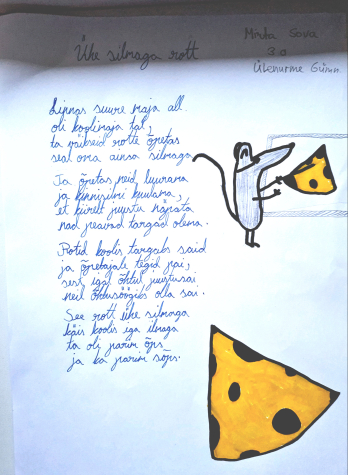 Ühe silmaga rott
Minta Sova
3.a
Ülenurme Gümn
Linnas suure maja all
oli koolimaja tal,
ta väikseid rotte õpetas
seal oma ainsa silmaga.
Ja õpetas neid luurama
ja kinnisilmi kuulama,
et kiirelt juustu näpata
nad peavad targad olema.
Rotid koolis targaks said
ja õpetajale tegid pai,
sest igal õhtul juustusai
neil õhtusöögiks olla sai.
See rott ühe silmaga
käis koolis iga ilmaga
ta oli parim õps
ja ka parim sõps.